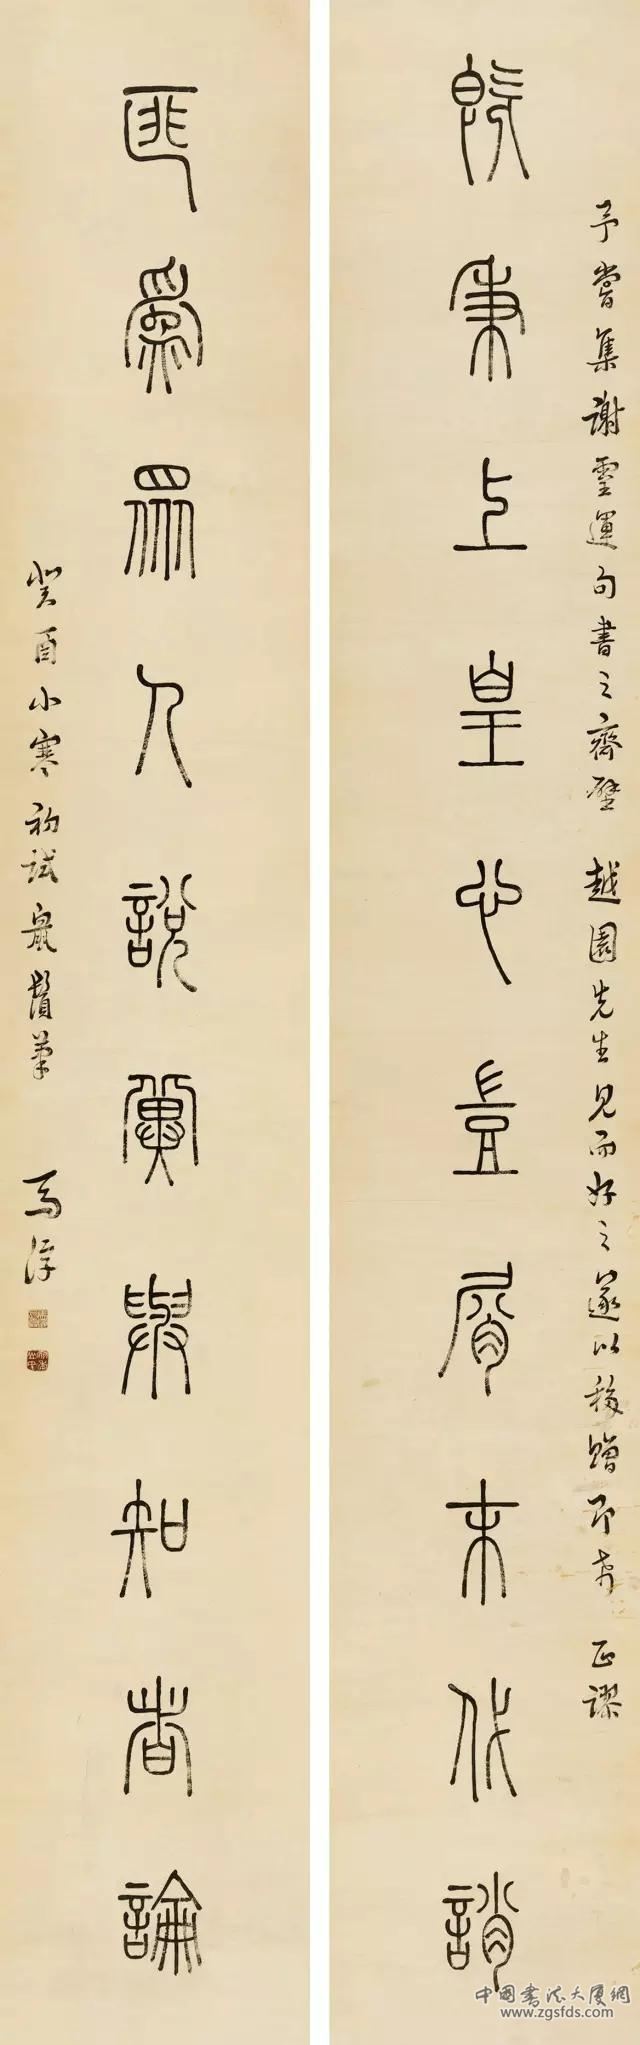 予嘗集謝靈運句書之齋壁 越園先生見而好之遂以移贈即希 正謬
既秉上皇心豈屑末代誚
匪爲眾人說冀與知者論
癸酉小寒初試鼠鬚筆 馬浮
中国书法大厦網
www.zgsfds.com